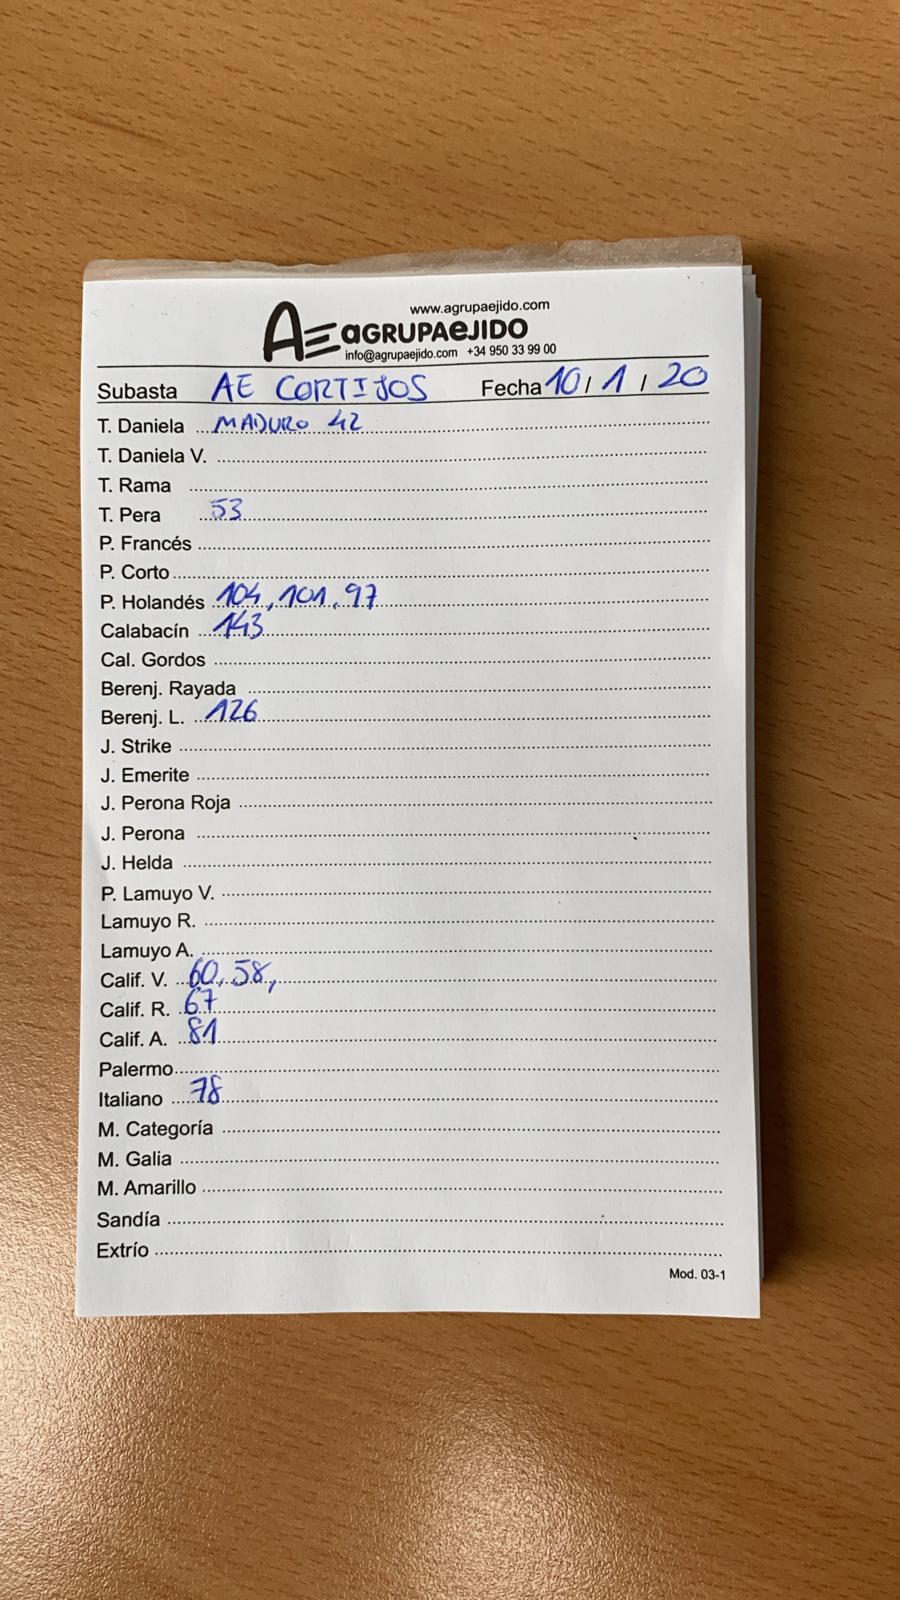 www.agrupaejido.com
AE AGRUPAEJIDO
info@agrupaejido.com +34 950 33 99 00
Subasta AE CORTIJOS Fecha 10 / 1 / 20
T. Daniela MADURO 42
T. Daniela V.
T. Rama
T. Pera 53
P. Francés
P. Corto
P. Holandés 104, 101, 97
Calabacín 143
Cal. Gordos
Berenj. Rayada
Berenj. L. 126
J. Strike
J. Emerite
J. Perona Roja
J. Perona
J. Helda
P. Lamuyo V.
Lamuyo R.
Lamuyo A.
Calif. V. 60, 58,
Calif. R. 67
Calif. A. 81
Palermo
Italiano 78
M. Categoría
M. Galia
M. Amarillo
Sandía
Extrío
Mod. 03-1